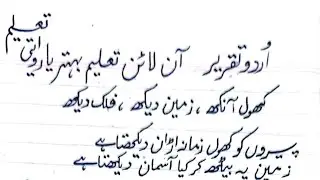 اُردو تقریر آن لائن تعلیم بہتر یا روایتی تعلیم
کھول آنکھ ، زمین دیکھ ، فلک دیکھ
پیروں کو کھول زمانہ اڑان دیکھتا ہے
زمین پہ بیٹھ کر کیا آسمان دیکھتا ہے